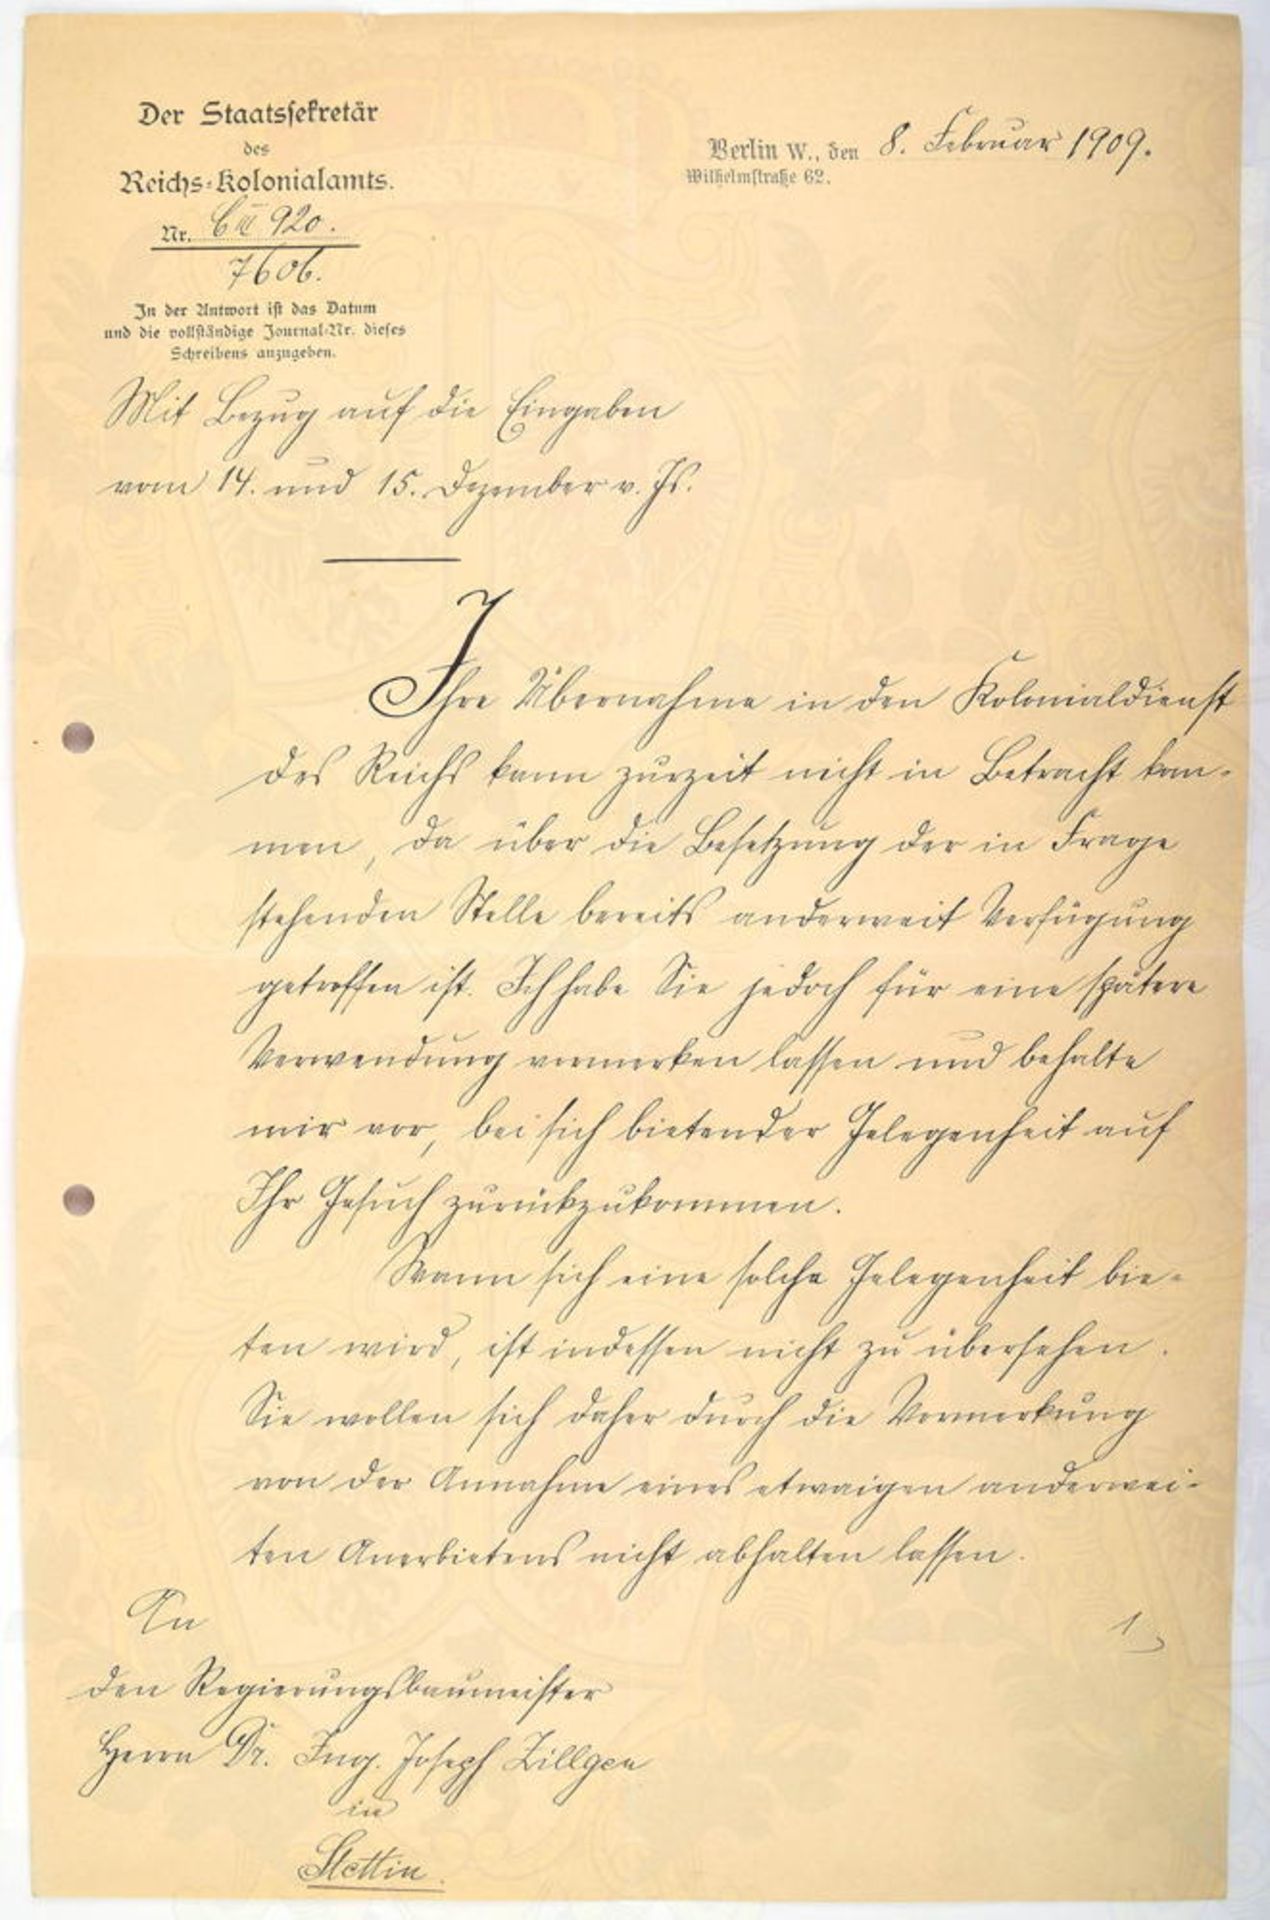 Der Staatssekretär
des
Reichs-Kolonialamts.
Nr. C III 920.
7606.
In der Antwort ist das Datum
und die vollständige Journal-Nr. dieses
Schreibens anzugeben.
Berlin W., den 8. Februar 1909.
Wilhelmstraße 62.
Mit Bezug auf die Eingaben
vom 14. und 15. Dezember v. Js.
Ihre Übernahme in den Kolonialdienst
des Reichs kann zurzeit nicht in Betracht kom-
men, da über die Besetzung der in Frage
stehenden Stelle bereits anderweit Verfügung
getroffen ist. Ich habe Sie jedoch für eine spätere
Verwendung vormerken lassen und behalte
mir vor, bei sich bietender Gelegenheit auf
Ihr Gesuch zurückzukommen.
Wann sich eine solche Gelegenheit bie-
ten wird, ist indessen nicht zu übersehen.
Sie wollen sich daher durch die Vormerkung
von der Annahme eines etwaigen anderwei-
ten Anerbietens nicht abhalten lassen.
An
den Regierungsbaumeister
Herrn Dr. Ing. Joseph Zillgen
in
Stettin.